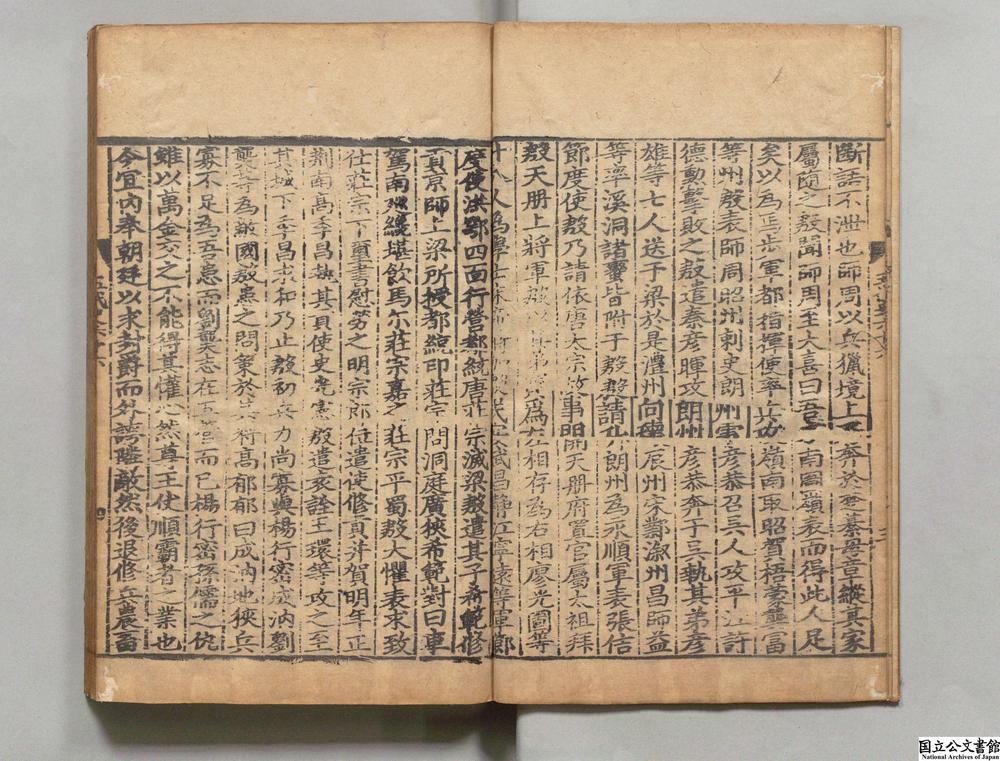 斷語不泄也師周以兵獵境上 奔於楚綦毋章縱其家
屬隨之殷聞師周至大喜曰吾 南圖嶺表而得此人足
矣以為馬步軍都指揮使率兵攻嶺南取昭賀梧蒙龔富
等州殷表師周昭州刺史朗州雷彥恭召吳人攻平江許
德勳擊敗之殷遣秦彥暉攻朗州彥恭奔于吳執其弟彥
雄等七人送于梁於是澧州向瓌辰州宋鄴漵州昌師益
等率溪洞諸蠻皆附于殷殷請升朗州為永順軍表張佶
節度使殷乃請依唐太宗故事開天册府置官屬太祖拜
殷天册上將軍殷以其弟賨為左相存為右相廖光圖等
十八人為學士末帝 武昌靜江寧遠等軍節
度使洪鄂四面行營都統唐莊宗滅梁殷遣其子希範修
貢京師上梁所授都統印莊宗問洞庭廣狹希範對曰車
駕南巡纔堪飲馬尔莊宗嘉之莊宗平蜀殷大懼表求致
仕莊宗下璽書慰勞之明宗即位遣使修貢并賀明年正
荆南高季昌執其貢使史光憲殷遣袁詮王環等攻之至
其城下季昌求和乃止殷初兵力尚寡與楊行密成汭劉
龑等為敵國殷患之問策於其將高郁郁曰成汭地狹兵
寡不足為吾患而劉龑志在五管而已楊行密孫儒之仇
雖以萬金交之不能得其懽心然尊王仗順霸者之業也
今宜內奉朝廷以求封爵而外誇隣敵然後退修兵農畜
国立公文書館
National Archives of Japan